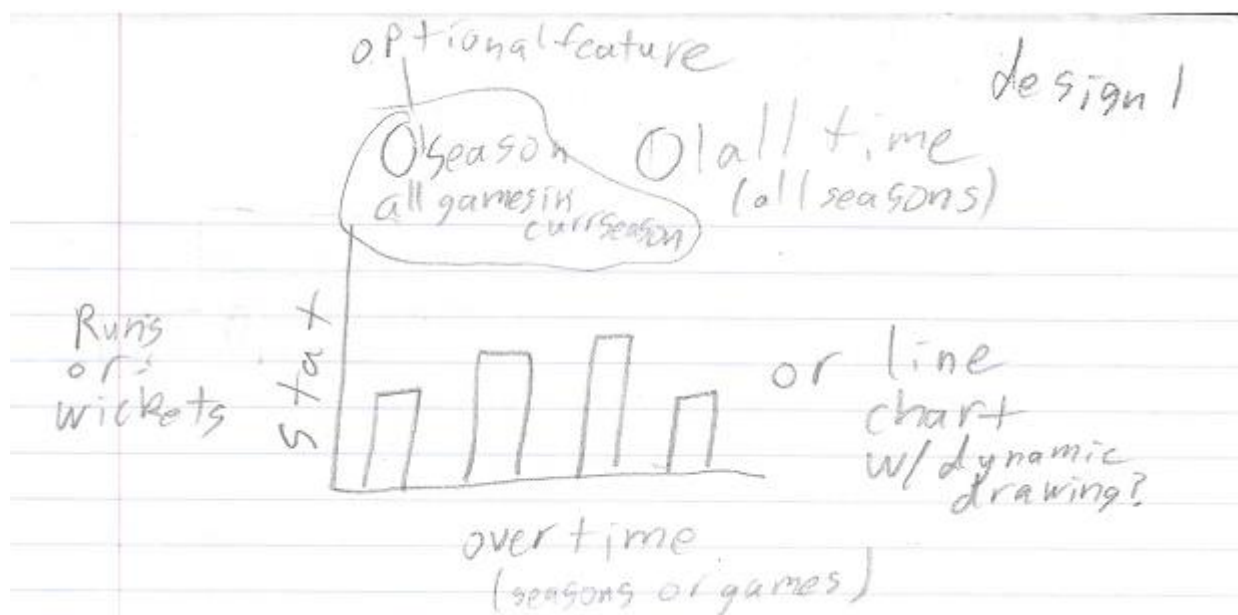 optional feature
design 1
season
all games in
curr season
all time
(all seasons)
Runs
or
wickets
stat
or line
chart
w/ dynamic
drawing?
over time
(seasons or games)